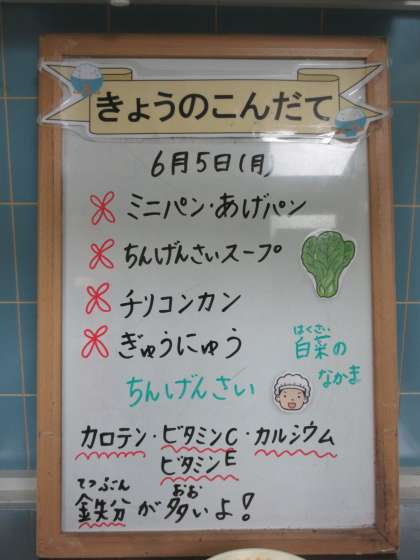 きょうのこんだて
6月5日(月)
ミニパン・あげパン
ちんげんさいスープ
チリコンカン
ぎゅうにゅう
はくさい
白菜の
なかま
ちんげんさい
カロテン・ビタミンC・カルシウム
ビタミンE
てつぶん おお
鉄分が多いよ!